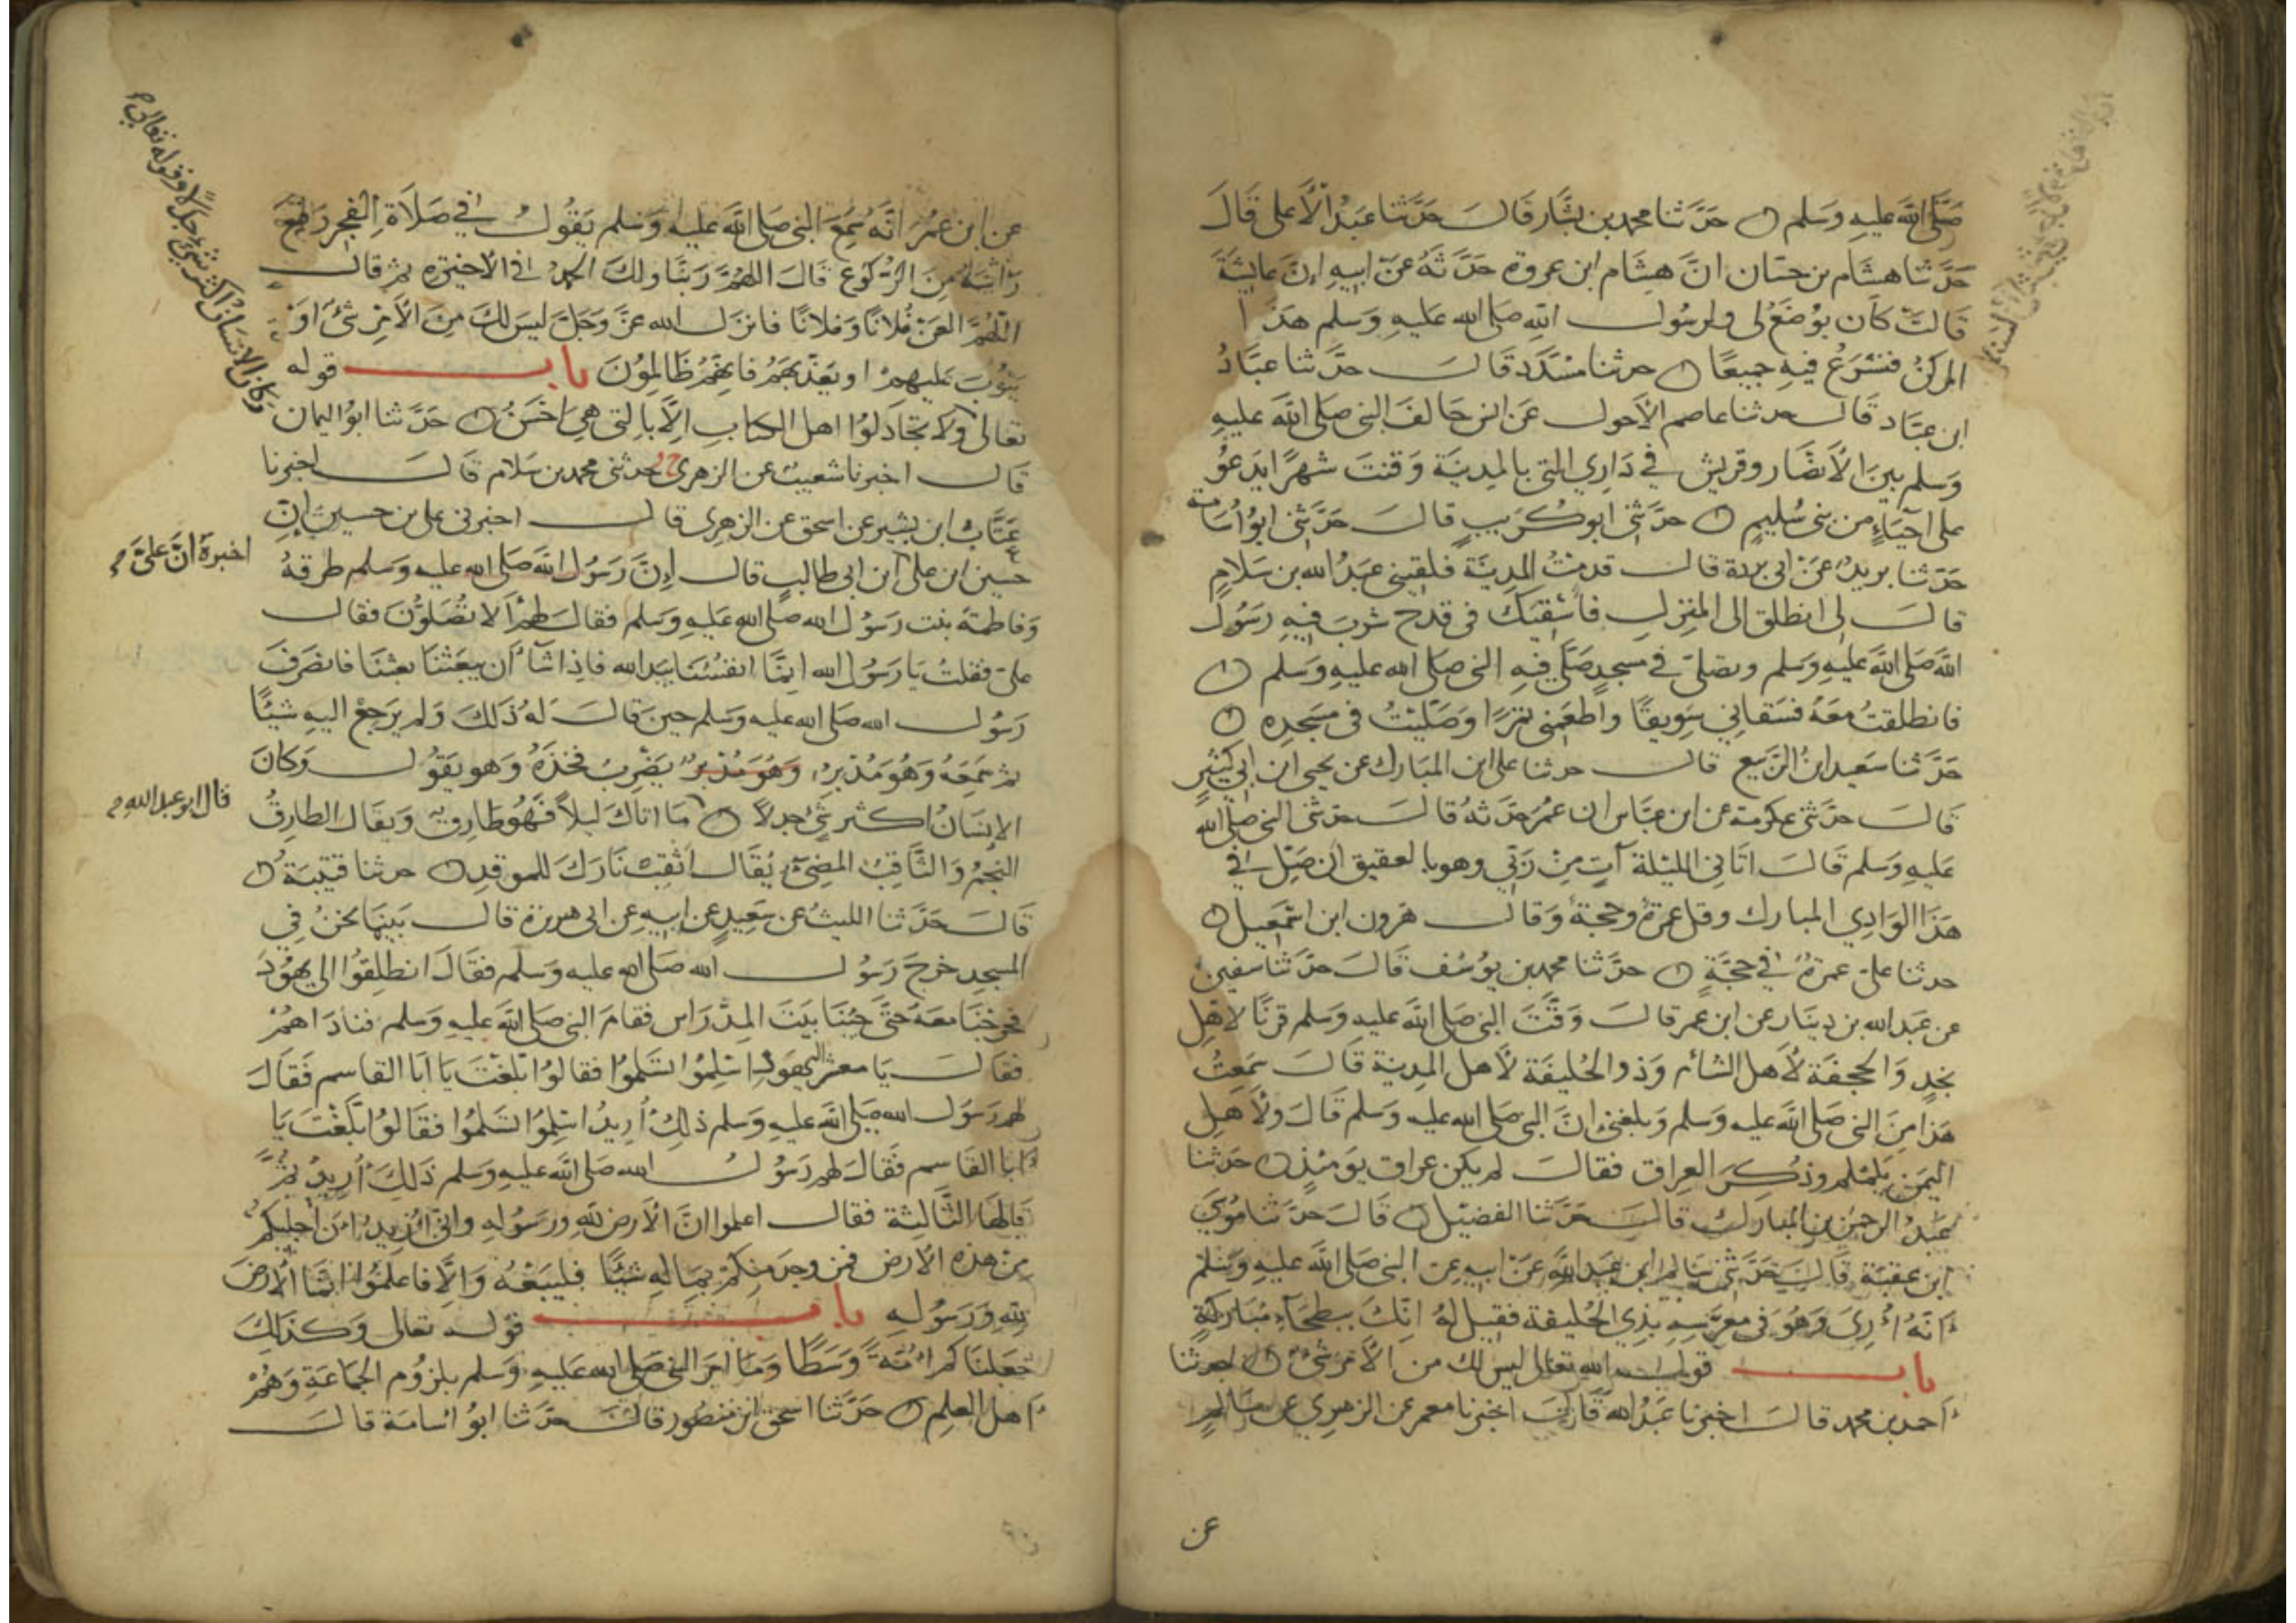 صَلَّى اللَّهُ عليهِ وَسَلم ۝ حَدَّثنا محمد بن بشّار قَالَ حَدَّثنا عَبْدُ الأعلى قَالَ
حَدَّثنا هشَام بن حسّان انَّ هِشَام ابن عروة حَدَّثهُ عَن ابيهِ انَّ عايشَةَ
قَالتْ كَان يُوضَعُ لى ولرسُول اللهِ صَلى الله عليهِ وَسلم هذَا
المركنُ فنشرَعُ فيهِ جميعًا ۝ حدثنا مسَدَّد قَالَ حدَّثنا عبَّادُ
ابن عبّاد قَالَ حدثنا عاصم الأحول عَن انس حَالفَ النبى صَلى اللَّهُ عليهِ
وَسلم بينَ الأنصَار وقريش في دَارِي التى بالمدينَة وَقنتَ شهرًا يَدعُو
على احيَاءٍ من بنى سُليمٍ ۝ حدَّثنى ابو كُرَيبٍ قَالَ حَدَّثنى ابوُ اُسَامة
حَدَّثنا بريدٌ عَنْ ابى بردة قَال قدمتُ المدينَة فلقينى عَبدُ الله بن سَلامٍ
قَالَ لى انطلق الى المنزل فأسْقيَكَ فى قدح شربَ فيهِ رَسُولُ
اللهِ صَلى اللَّهُ عليهِ وَسَلم وتصلى في مَسجدٍ صَلَّى فيهِ النبى صَلى الله عليهِ وَسلم ۝
فانطلقتُ معَهُ فسَقانِي سَوِيقًا واطعَمنى تمرًا وَصَلّيْتُ فى مَسْجدِه ۝
حَدَّثنا سَعيد ابنُ الرَّبيع قَالَ حدثنا على ابن المبَارك عن يحيى ابن ابى كثيرٍ
قَالَ حدَّثنى عكرمة عن ابن عبّاس ان عُمرَ حَدَّثهُ قَالَ حدثنى النبى صَلى الله
عَليهِ وَسلم قَالَ اتَانِى الليْلة آتٍ مِنْ رَبّى وهو بالعقيق ان صَلّ في
هذَا الوَادِي المبارك وقل عمرةٌ وحجةٌ وَقال هَرون ابن اسْمعيل ۝
حدثنا على عمرَةٌ في حجَّةٍ ۝ حدَّثنا محمد بن يوُسُف قَالَ حدّثنا سفينُ
عن عَبد الله بن دينَار عن ابن عمر قَالَ وَقَّتَ النبى صَلى اللَّهُ عليه وَسلم قرنًا لاهلِ
نجدٍ وَالجحفَة لأهل الشام وَذو الحُليفَة لأهل المدينَة قَالَ سَمعتُ
هَذا منَ النبى صَلى اللَّهُ عليه وَسلم وَبلغنى انَّ النبى صَلى الله عليه وَسلم قَالَ ولأهل
اليمَن يلَملَم وذُكرَ العراق فقالَ لم يكن عراق يوَمئذٍ ۝ حدثنا
عَبدُ الرحمن بن المبَارَك قَالَ حَدَّثنا الفضيْل ۝ قَالَ حَدَّثنا مُوسَى
ابن عقبَة قَالَ حَدَّثنى سَالم ابن عَبد اللَّهِ عَنْ ابيهِ عن النبى صَلى اللَّهُ عليهِ وَسَلم
اَنَّهُ اُرِىَ وَهُوَ فى معرّسِهِ بذِي الحُليفة فقيل لهُ انّكَ ببطحَاءَ مُبَاركةٍ
باب قول الله تعالى ليس لك من الأمر شىءٌ ۝ حدثنا
احمد بن محمد قالَ اخبرنا عَبْدُ الله قَالَ اخبرنا معمر عن الزهرى عن سَالمٍ
عن
عن ابن عُمرَ انَّه سَمِعَ النبى صَلى اللَّهُ عليه وَسَلم يَقُولُ في صَلاَةِ الفجر رَفعَ
رَأسَهُ مِنَ الرُّكوُع قَالَ اللهُمَّ رَبَّنَا ولكَ الحمدُ فى الأخيرَه ثم قالَ
اللّهُمَّ العَنْ فُلانًا وَفلانًا فانزَلَ الله عزَّ وَجَلّ ليسَ لكَ مِنَ الأمْرِ شىْءٌ اَوْ
يَتوُبَ عَليهِمْ او يعَذّبَهُمْ فَانهُمْ ظَالِموُنَ باب قوله
وكانَ الانسَانُ اكثرَ شىْءٍ جدلًا وقوله تعالى
تعَالى وَلا تجَادِلوُا اهل الكتابِ الاَّ بالتى هِىَ اَحْسَنُ ۝ حَدَّثنا ابوُ اليمان
قَالَ اخبرنا شعيبٌ عن الزهرى ح وحدثنى محمد بن سَلام قَالَ اخبرنا
عَتَّابُ ابن بشير عن اسحق عن الزهرى قَالَ اخبرنى على بن حسين انّ
حسين ابن على ابن ابى طالبٍ قَال إنَّ رَسُول اللَّهِ صَلى الله عليه وَسلم طرقهُ
اخبرهُ انَّ علىّ
وَفاطمَة بنت رَسُول الله صَلى الله عَليه وَسلم فقالَ لهمْ اَلا تصَلّوُنَ فقَال
علىّ فقلتُ يَا رَسُولَ الله انِمَّا انفسُنَا بيَد الله فاذِا شآءَ أن يبعَثنَا بعثنَا فانصَرفَ
رَسُولُ الله صَلى الله عليه وَسلم حينَ قَالَ لهُ ذلكَ وَلم يرَجعْ اليهِ شيئًا
ثم سَمعَهُ وَهُوَ مُدْبرٌ وَهُوَ مُدْبرٌ يَضرِبُ فخذهُ وَهو يقوُلُ وَكانَ
الإنسَانُ اكثرَ شىْءٍ جدلاً ۝ مَا اتَاكَ ليلاً فهُوَ طَارِقٌ وَيقَال الطارِقُ
قال ابو عبد الله
النجمُ وَالثَّاقِبُ المضِىءُ يُقَال اَثْقِبْ نَارَكَ للموقدِ ۝ حدثنا قتيبَةُ ۝
قَالَ حَدَّثنا الليثُ عن سَعِيدٍ عن ابيهِ عن ابى هريرة قَالَ بَينَمَا نحْنُ فِى
المسجد خرجَ رَسُولُ الله صَلى الله عليه وَسَلم فقَالَ انطلِقُوا الى يهوُدَ
فخرَجنَا معَهُ حَتَّى جئنَا بيَتَ المِدْرَاس فقامَ النبى صَلى اللَّهُ عليه وَسلم فنادَاهُمْ
فقَالَ يَا معشرَ اليهود اَسْلِمُوا تسْلمُوا فقَالوُا بلّغْتَ يَا ابَا القاسم فَقَالَ
لهم رَسُول الله صَلى اللَّهُ عليهِ وَسلم ذلكَ اُرِيدُ اسْلِمُوا تسْلمُوا فقَالوُا بَلّغْتَ يَا
ابَا القَاسم فَقَالَ لهم رَسُولُ الله صَلى اللَّهُ عليهِ وَسلم ذلكَ اُرِيدُ ثمَّ
قالهَا الثَّالثة فقَالَ اعلموا انَّ الاَرضَ للهِ ورَسُولهِ وانّى اُرِيدُ انْ اُجليكم
من هذه الأرض فمن وجدَ منكمْ بمَالهِ شيئًا فليبعْهُ وَالاَّ فاعلمُوا انّمَا الاَرضَ
للهِ وَرَسُولهِ باب قوله تعَالى وَكذلكَ
جَعلنَاكم اُمَّةً وَسَطًا وَمَا امرَ النبى صَلى الله عَليهِ وَسَلم بلزُوم الجَمَاعَةِ وَهُمْ
اَهل العلم ۝ حَدَّثنا اسحق ابن منصُور قَالَ حدَّثنا ابوُ اُسَامَة قَالَ